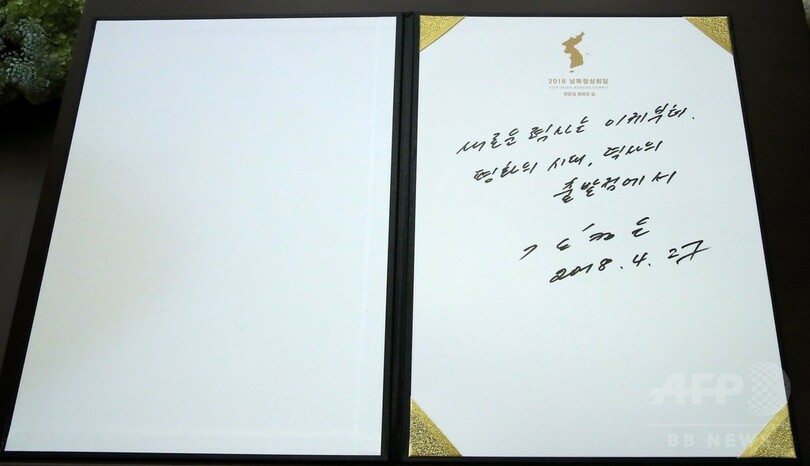 2018 남북정상회담
2018 INTER-KOREAN SUMMIT
판문점 평화의 집
새로운 력사는 이제부터.
평화의 시대, 력사의
출발점에서
김정은
2018. 4. 27
AFP
BB NEWS